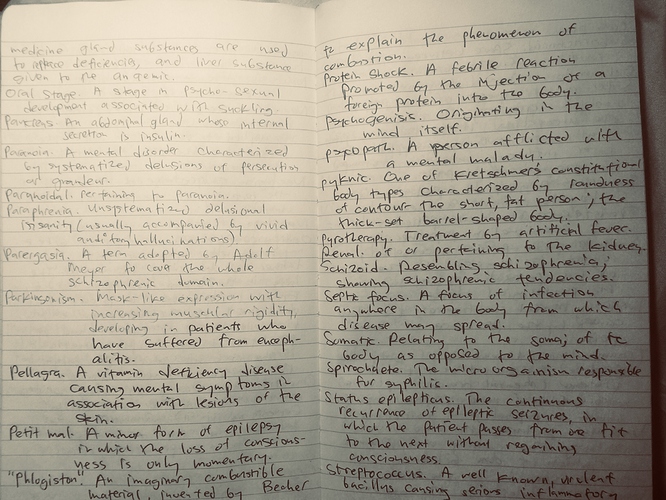 medicine gland substances are used
to replace deficiency, and liver substance
given to the anaemic.
Oral Stage. A stage in psycho-sexual
development associated with suckling.
Pancreas. An abdominal gland whose internal
secretion is insulin.
Paranoia. A mental disorder characterized
by systematized delusions of persecution
or grandeur.
Paranoidal. Pertaining to paranoia.
Paraphrenia. Unsystematized delusional
insanity (usually accompanied by vivid
auditory hallucinations)
Parergasia. A term adopted by Adolf
Meyer to cover the whole
schizophrenic domain.
Parkinsonism. Mask-like expression with
increasing muscular rigidity,
developing in patients who
have suffered from enceph-
alitis.
Pellagra. A vitamin deficiency disease
causing mental symptoms in
association with lesions of the
skin.
Petit mal. A minor form of epilepsy
in which the loss of conscious-
ness is only momentary.
"Phlogiston". An imaginary combustible
material, invented by Becher
to explain the phenomenon of
combustion.
Protein Shock. A febrile reaction
promoted by the injection of a
foreign protein into the body.
Psychogenisis. Originating in the
mind itself.
psycopath. A person afflicted with
a mental malady.
pyknic. One of Kretschmer's constitutional
body types characterized by roundness
of contour the short, fat person, the
thick-set barrel-shaped body.
Pyrotherapy. Treatment by artificial fever.
Renal. of or pertaining to the kidney.
Schizoid. Resembling schizophrenia;
showing schizophrenic tendencies.
Septic focus. A focus of infection
anywhere in the body from which
disease may spread.
Somatic. Relating to the soma; of the
body as opposed to the mind.
Spirochaete. The micro organism responsible
for syphilis.
Status epilepticus. The continuous
recurrence of epileptic seizures, in
which the patient passes from one fit
to the next without regaining
consciousness.
Streptococcus. A well known, virulent
bacillus causing serious inflammatory